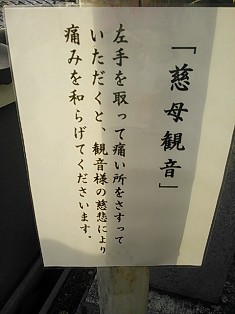 「慈母観音」
左手を取って痛い所をさすって
いただくと、観音様の慈悲により
痛みを和らげてくださいます。